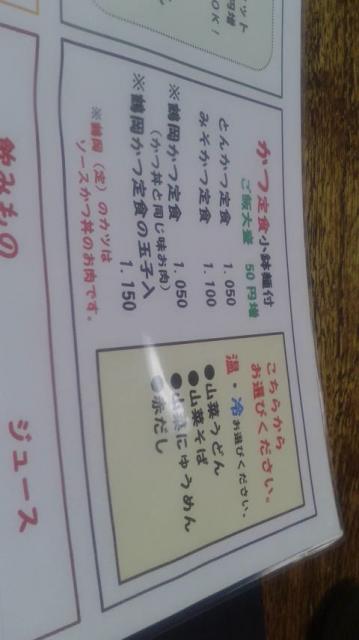 ット
円増
OK！
かつ定食小鉢麺付
ご飯大盛　50円増
とんかつ定食　1.050
みそかつ定食　1.100
※鶴岡かつ定食　1.050
（かつ丼と同じ味お肉）
※鶴岡かつ定食の玉子入　1.150
※鶴岡（定）のカツは
ソースかつ丼のお肉です。
こちらから
お選びください。
温・冷お選びください。
●山菜うどん
●山菜そば
●山菜にゅうめん
●赤だし
飲みもの
ジュース